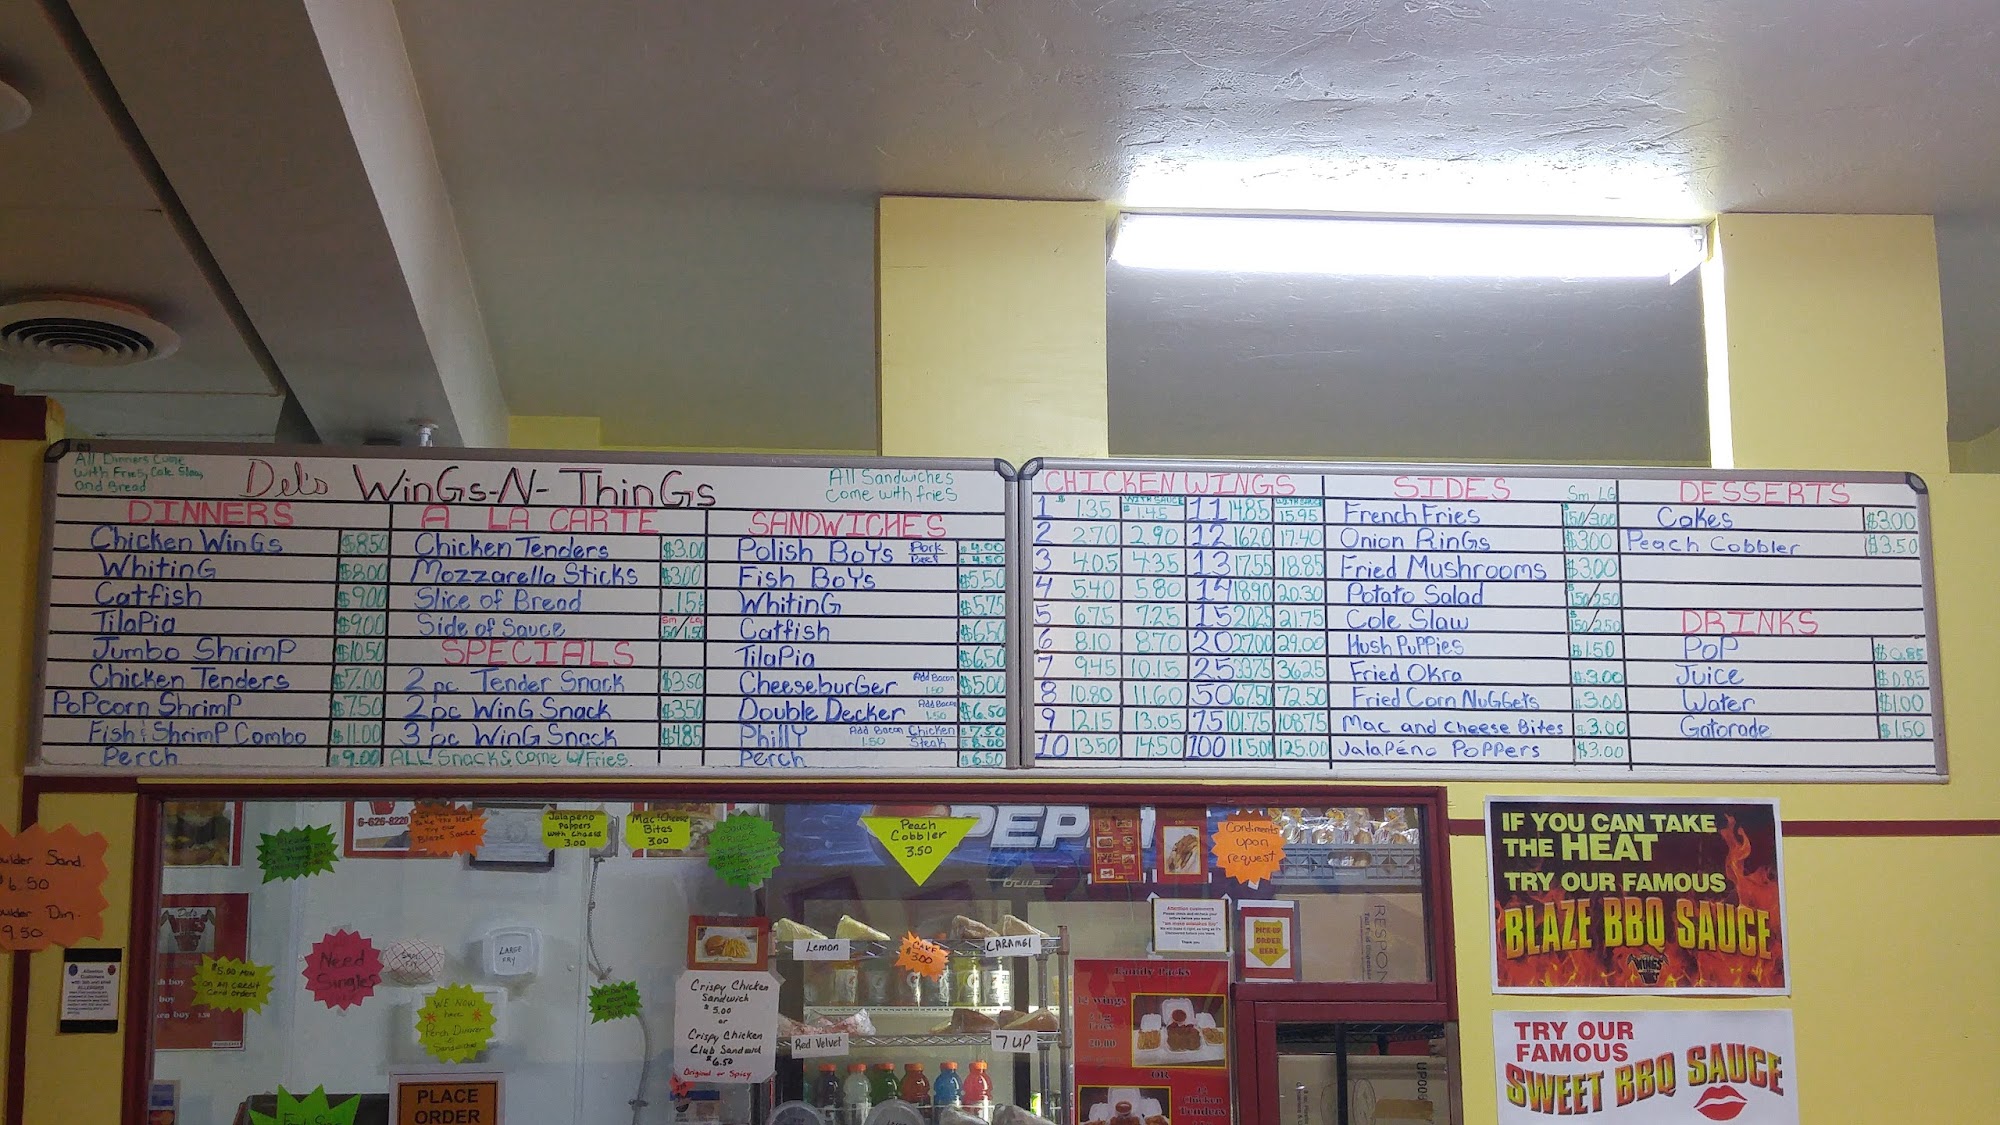 All Dinners Come
with Fries, Cole Slaw,
and Bread
Del's WinGs-N-ThinGs
All Sandwiches
Come with fries
DINNERS
Chicken WinGs $8.50
WhitinG $8.00
Catfish $9.00
TilaPia $9.00
Jumbo ShrimP $10.50
Chicken Tenders $7.00
PoPcorn ShrimP $7.50
Fish & ShrimP Combo $11.00
Perch $9.00
A LA CARTE
Chicken Tenders $3.00
Mozzarella Sticks $3.00
Slice of Bread .15¢
Side of Sauce Sm/LG .50/1.50
SPECIALS
2 pc Tender Snack $3.50
2 pc WinG Snack $3.50
3 pc WinG Snack $4.85
ALL Snacks Come w/Fries
SANDWICHES
Polish BoYs Pork $4.00
Beef $4.50
Fish BoYs $5.50
WhitinG $5.75
Catfish $6.50
TilaPia $6.50
CheeseburGer Add Bacon 1.50 $5.00
Double Decker Add Bacon 1.50 $6.50
PhillY Add Bacon 1.50 Chicken $7.50
Steak $8.00
Perch $6.50
CHICKEN WINGS
WITH SAUCE WITH SAUCE
1 $1.35 $1.45 11 14.85 15.95
2 2.70 2.90 12 16.20 17.40
3 4.05 4.35 13 17.55 18.85
4 5.40 5.80 14 18.90 20.30
5 6.75 7.25 15 20.25 21.75
6 8.10 8.70 20 27.00 29.00
7 9.45 10.15 25 33.75 36.25
8 10.80 11.60 50 67.50 72.50
9 12.15 13.05 75 101.75 108.75
10 13.50 14.50 100 115.00 125.00
SIDES Sm LG
French Fries $1.50/3.00
Onion RinGs $3.00
Fried Mushrooms $3.00
Potato Salad $1.50/2.50
Cole Slaw $1.50/2.50
Hush PuPPies $1.50
Fried Okra $3.00
Fried Corn NuGGets $3.00
Mac and Cheese Bites $3.00
JalaPéno PoPPers $3.00
DESSERTS
Cakes $3.00
Peach Cobbler $3.50
DRINKS
PoP $0.85
Juice $0.85
Water $1.00
Gatorade $1.50
6-626-8220
Jalapeno
Poppers
with cheese
3.00
Mac+Cheese
Bites
3.00
Peach
Cobbler
3.50
PEP
Condiments
upon
request
ulder Sand.
6.50
ulder Din.
9.50
Attention
Customers
Need
Singles
$5.00 Min
on all credit
Card orders
LARGE
FRY
WE NOW
have
Perch Dinner
Sandwiches
PLACE
ORDER
Crispy Chicken
Sandwich
$5.00
or
Crispy Chicken
Club Sandwich
$6.50
Original or Spicy
Lemon
CAKE
$3.00
CARAMEL
Red Velvet
7 UP
Attention customers
Thank you
PICK UP
ORDER
HERE
Family Packs
12 wings
Fries
20.00
OR
Chicken
Tenders
RESPON
IF YOU CAN TAKE
THE HEAT
TRY OUR FAMOUS
BLAZE BBQ SAUCE
WINGS
TRY OUR
FAMOUS
SWEET BBQ SAUCE